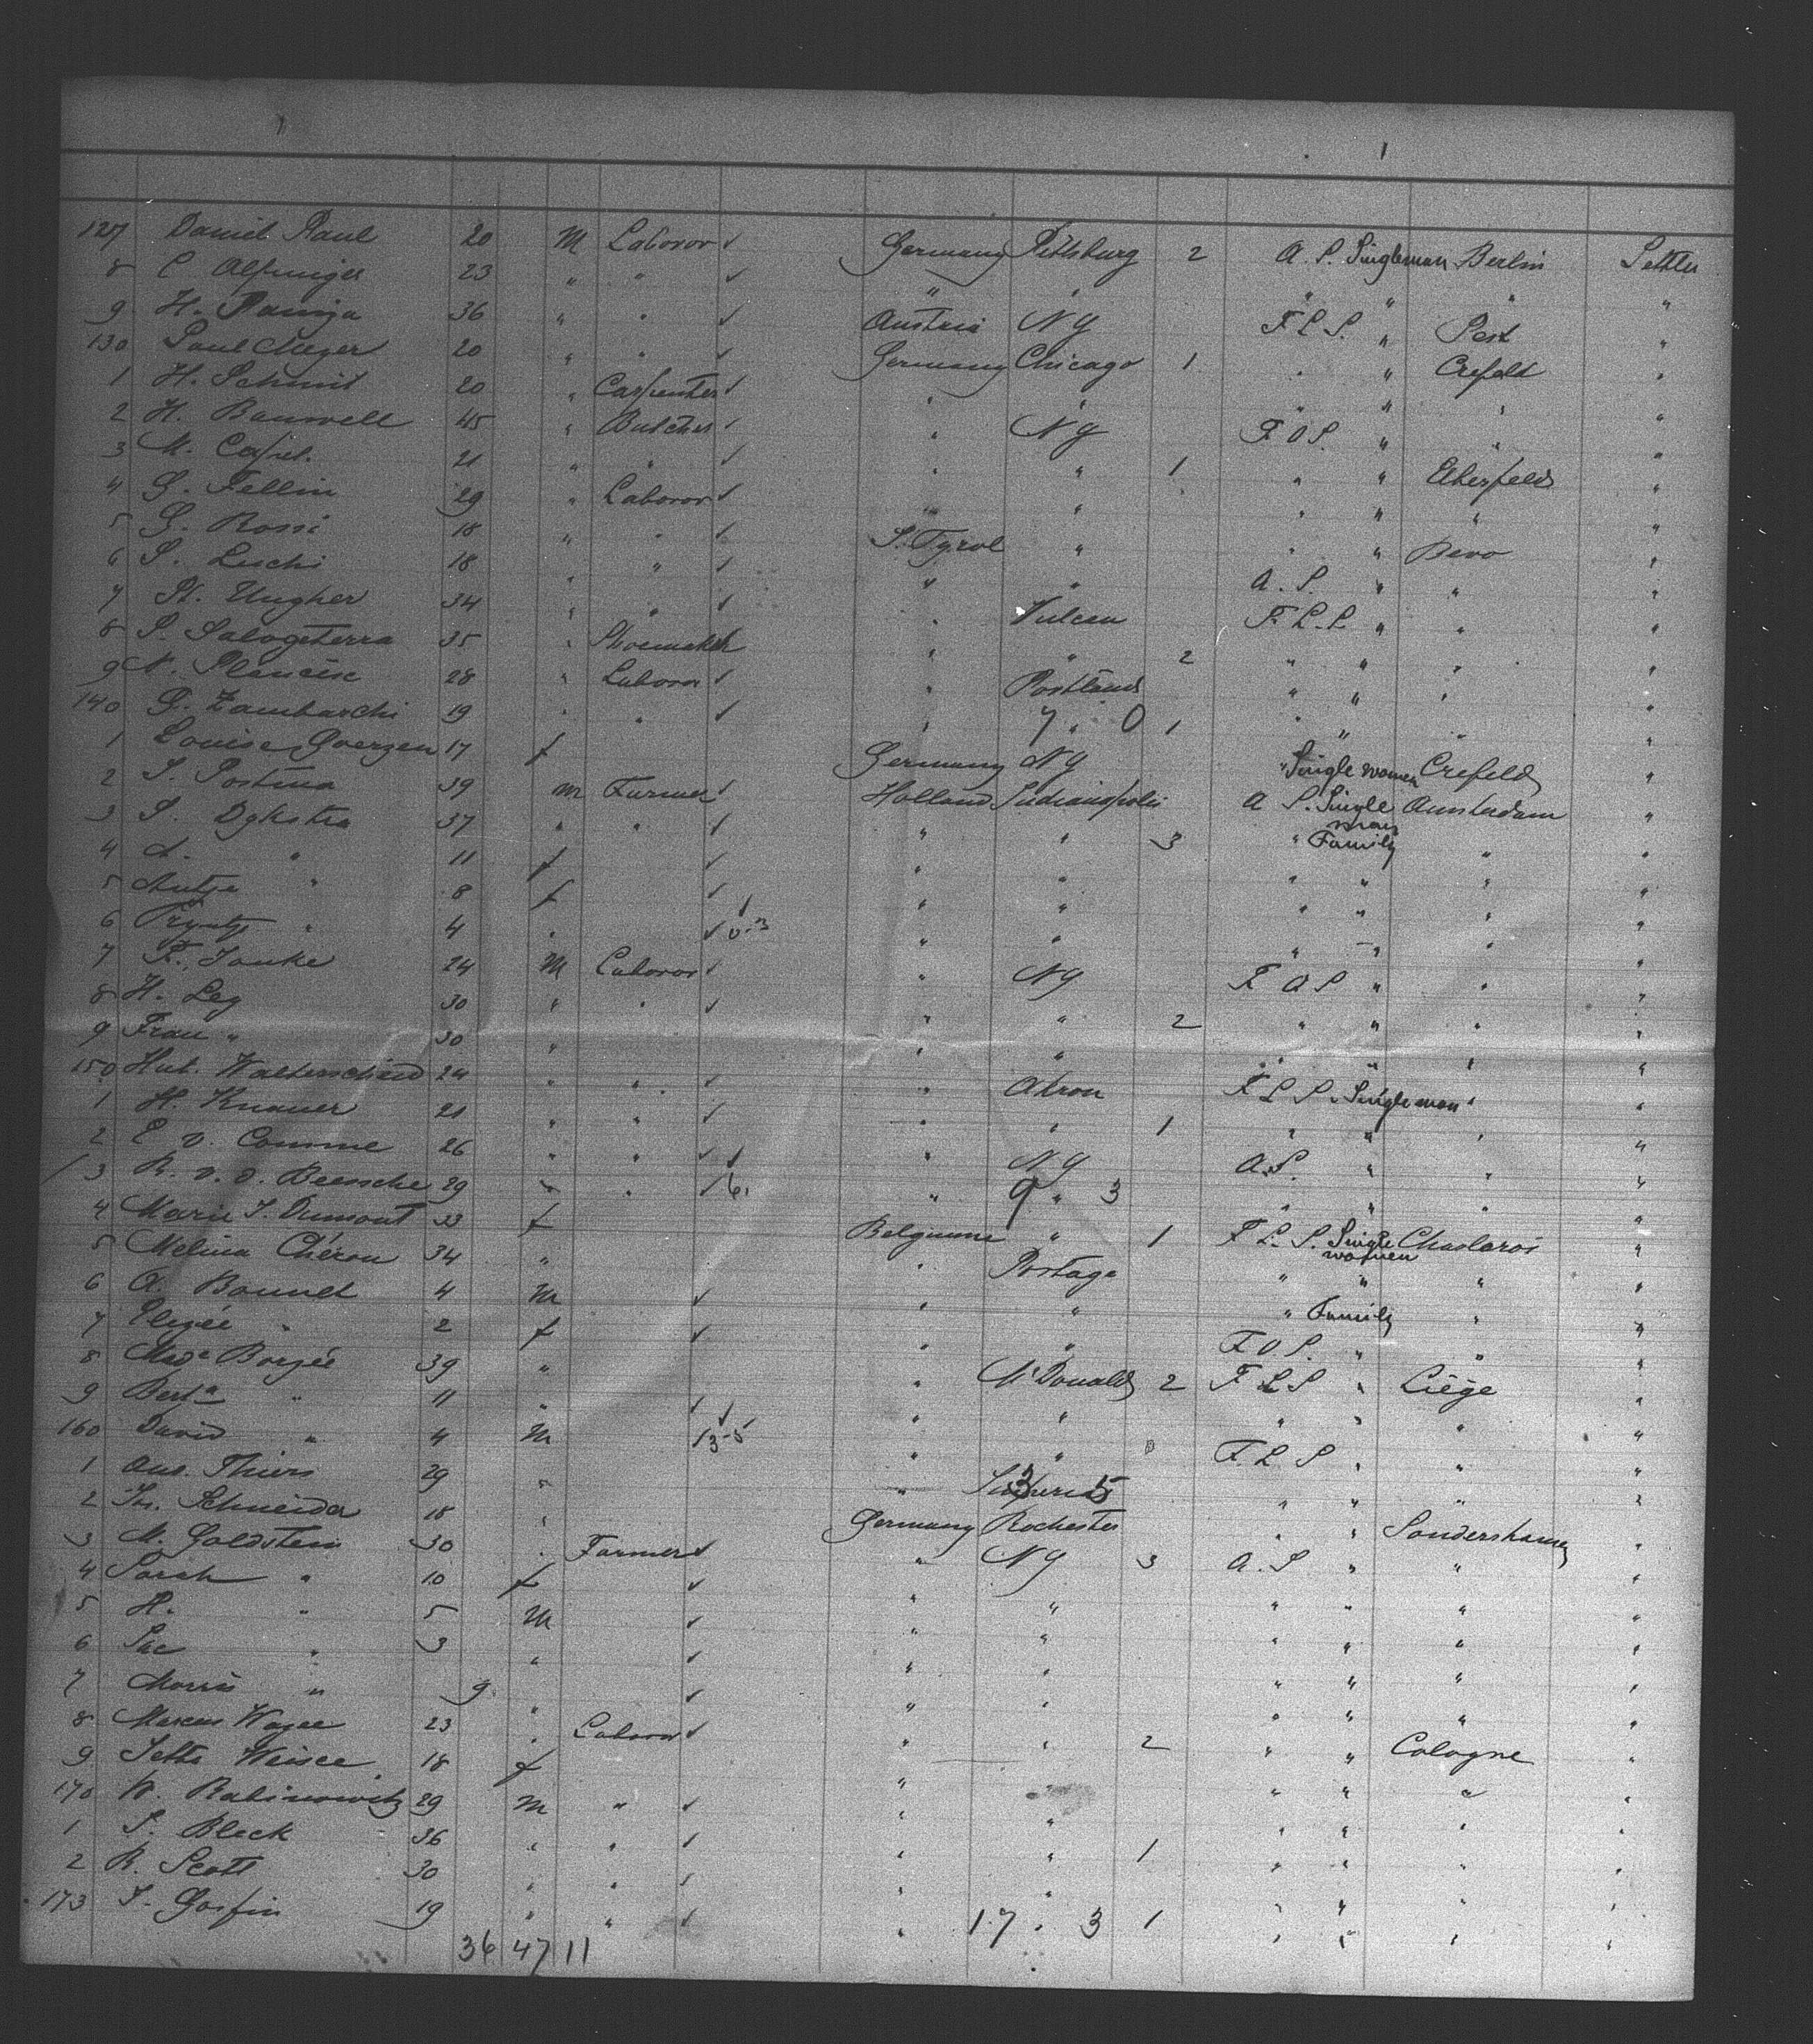 127 Daniel Paul 20 M Laboror ✓ Germany Pittsburg 2 A. S. Single man Berlin Settler
8 C 23 " " ✓ " " " " " "
9 H. 36 " " ✓ Austria NY F L S. " Pest "
130 Paul Meyer 20 " " ✓ Germany Chicago 1 " " Crefeld "
1 H. Schmit 20 " Carpenter ✓ " " " " " "
2 H. 45 " Butcher ✓ " NY F O S. " " "
3 M. 21 " " ✓ " " 1 " " Elberfeld "
4 G. Fellin 29 " Laboror ✓ " " " " " "
5 G. Rossi 18 " " ✓ S. Tyrol " " " Revo "
6 S. Luchi 18 " " ✓ " " A. S. " " "
7 St. Ungher 34 " " ✓ " Vulcan F. L. S. " " "
8 S. Salvogeterra 35 " Shoemaker ✓ " " 2 " " " "
9 N. 28 " Laboror ✓ " Portland " " " "
140 G. Zambarchi 19 " " ✓ " 7 " 0 1 " " " "
1 Louise Goerzen 17 f Germany NY " Single women Crefeld "
2 S. Postma 39 m Farmer ✓ Holland Indianapolis A S. Single man Amsterdam "
3 S. Dykstra 37 " " ✓ " " 3 " Family " "
4 A. " 11 f ✓ " " " " " "
5 Antje " 8 f ✓ " " " " " "
6 Tryntje " 4 " ✓ 0-3 " " " " " "
7 F. Jonke 24 M Laboror ✓ " NY F O S " " "
8 H. Ley 30 " " ✓ " " 2 " " " "
9 Frau " 30 " " " " " " "
150 Hub. Walterscheid 24 " " ✓ " Akron F L S. Single man " "
1 H. Knauer 21 " " ✓ " " 1 " " " "
2 E v. Comme 26 " " ✓ ✓ " NY A. S. " " "
3 R. v. d. Beessche 29 " " ✓ 6. " 9 " 3 " " " "
4 Marie J. Dumont 33 f Belgiume " 1 F L. S. Single women Charleroi "
5 Melina Chéron 34 " " Portage " " " "
6 A. Bonnet 4 M ✓ " " " Family " "
7 " 2 f ✓ " " F. O S. " " "
8 Made Borzée 39 " " McDonald 2 F L S " Liége "
9 Berta " 11 " ✓ ✓ " " " " " "
160 David " 4 M ✓ 3-5 " " F. L S " " "
1 Thiers 29 " " 3 5 " " " "
2 Schneider 18 " Germany Rochester " " Sondershausen "
3 M. Goldstein 30 " Farmer ✓ " NY 3 A. S " " "
4 Sarah " 10 f ✓ " " " " " "
5 H. " 5 M ✓ " " " " " "
6 " 3 " ✓ " " " " " "
7 Morris " 9 " ✓ " " " " " "
8 Marcus 23 " Laboror ✓ " " 2 " " Cologne "
9 Jetta 18 f " " " " " "
170 Rabinowitz 29 m " ✓ " " " " " "
1 S. Bleck 36 " " ✓ " " 1 " " " "
2 R. Scott 30 " " ✓ " " " " " "
173 S. 19 " " ✓ " 17 " 3 1 " " " "
36 47 11